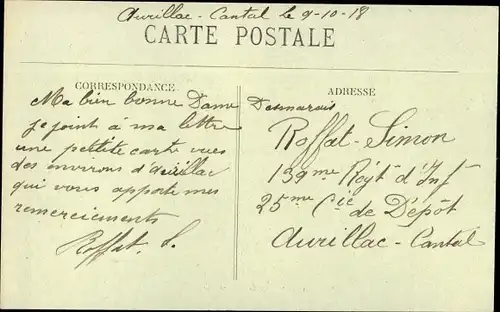 Aurillac - Cantal le 9-10-18
CARTE POSTALE
CORRESPONDANCE
Ma bien bonne Dame Desmarais
je joint à ma lettre
une petite carte vues
des environs d'Aurillac
qui vous apporte mes
remerciements
Roffat. S.
ADRESSE
Roffat-Simon
139me Régt d'Inf
25me Cie de Dépôt
Aurillac - Cantal